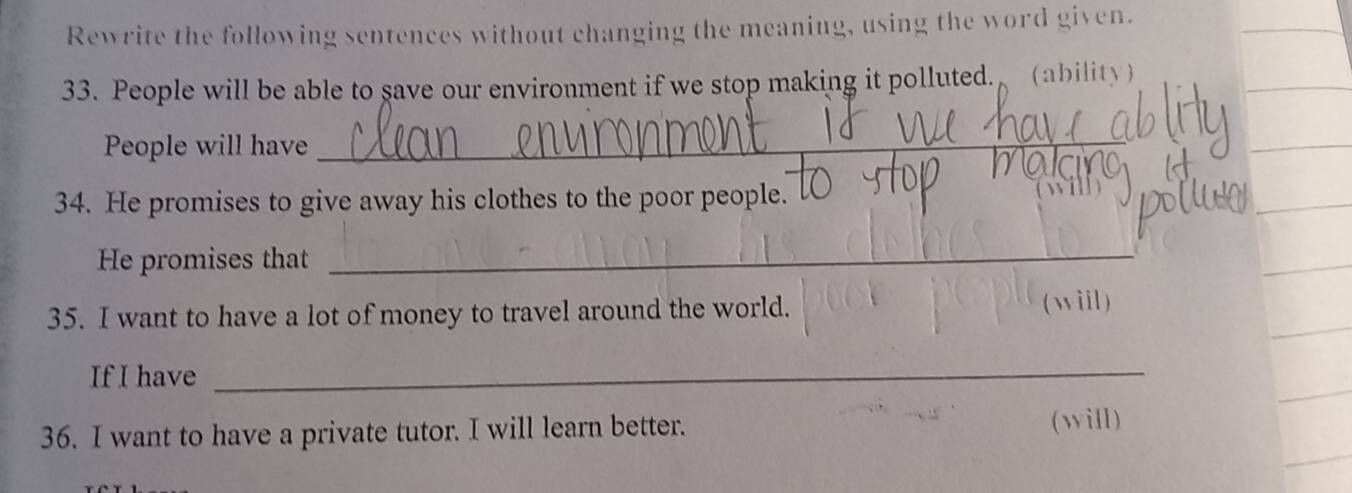 Rewrite the following sentences without changing the meaning, using the word given.
33. People will be able to save our environment if we stop making it polluted. (ability)
People will have clean environment if we have ablity
to stop making it polluted
34. He promises to give away his clothes to the poor people. (will)
He promises that to give - away his clothes to the
poor people
35. I want to have a lot of money to travel around the world. (wiil)
If I have
36. I want to have a private tutor. I will learn better. (will)